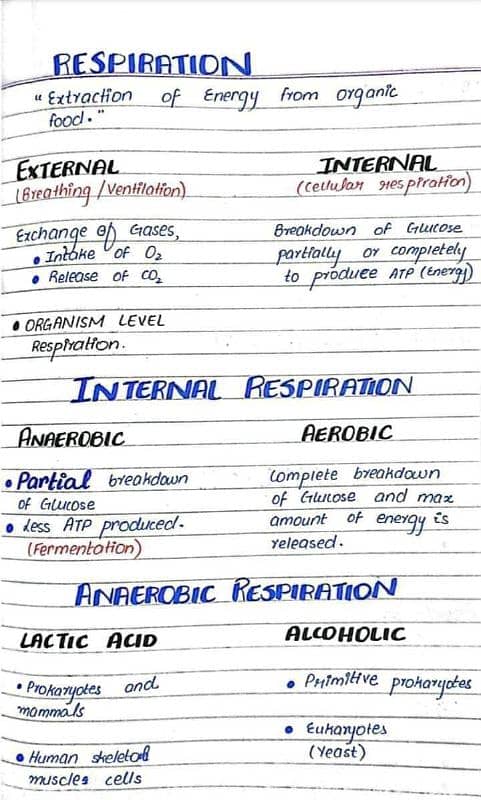 RESPIRATION
"Extraction of Energy from organic
food."
EXTERNAL
(Breathing / Ventilation)
Exchange of Gases,
• Intake of O₂
• Release of CO₂
• ORGANISM LEVEL
Respiration.
INTERNAL
(cellular respiration)
Breakdown of Glucose
partially or completely
to produce ATP (Energy)
INTERNAL RESPIRATION
ANAEROBIC
• Partial breakdown
of Glucose
• less ATP produced.
(Fermentation)
AEROBIC
Complete breakdown
of Glucose and max
amount of energy is
released.
ANAEROBIC RESPIRATION
LACTIC ACID
• Prokaryotes and
mammals
• Human skeletal
muscles cells
ALCOHOLIC
• Primitive prokaryotes
• Eukaryotes
(Yeast)